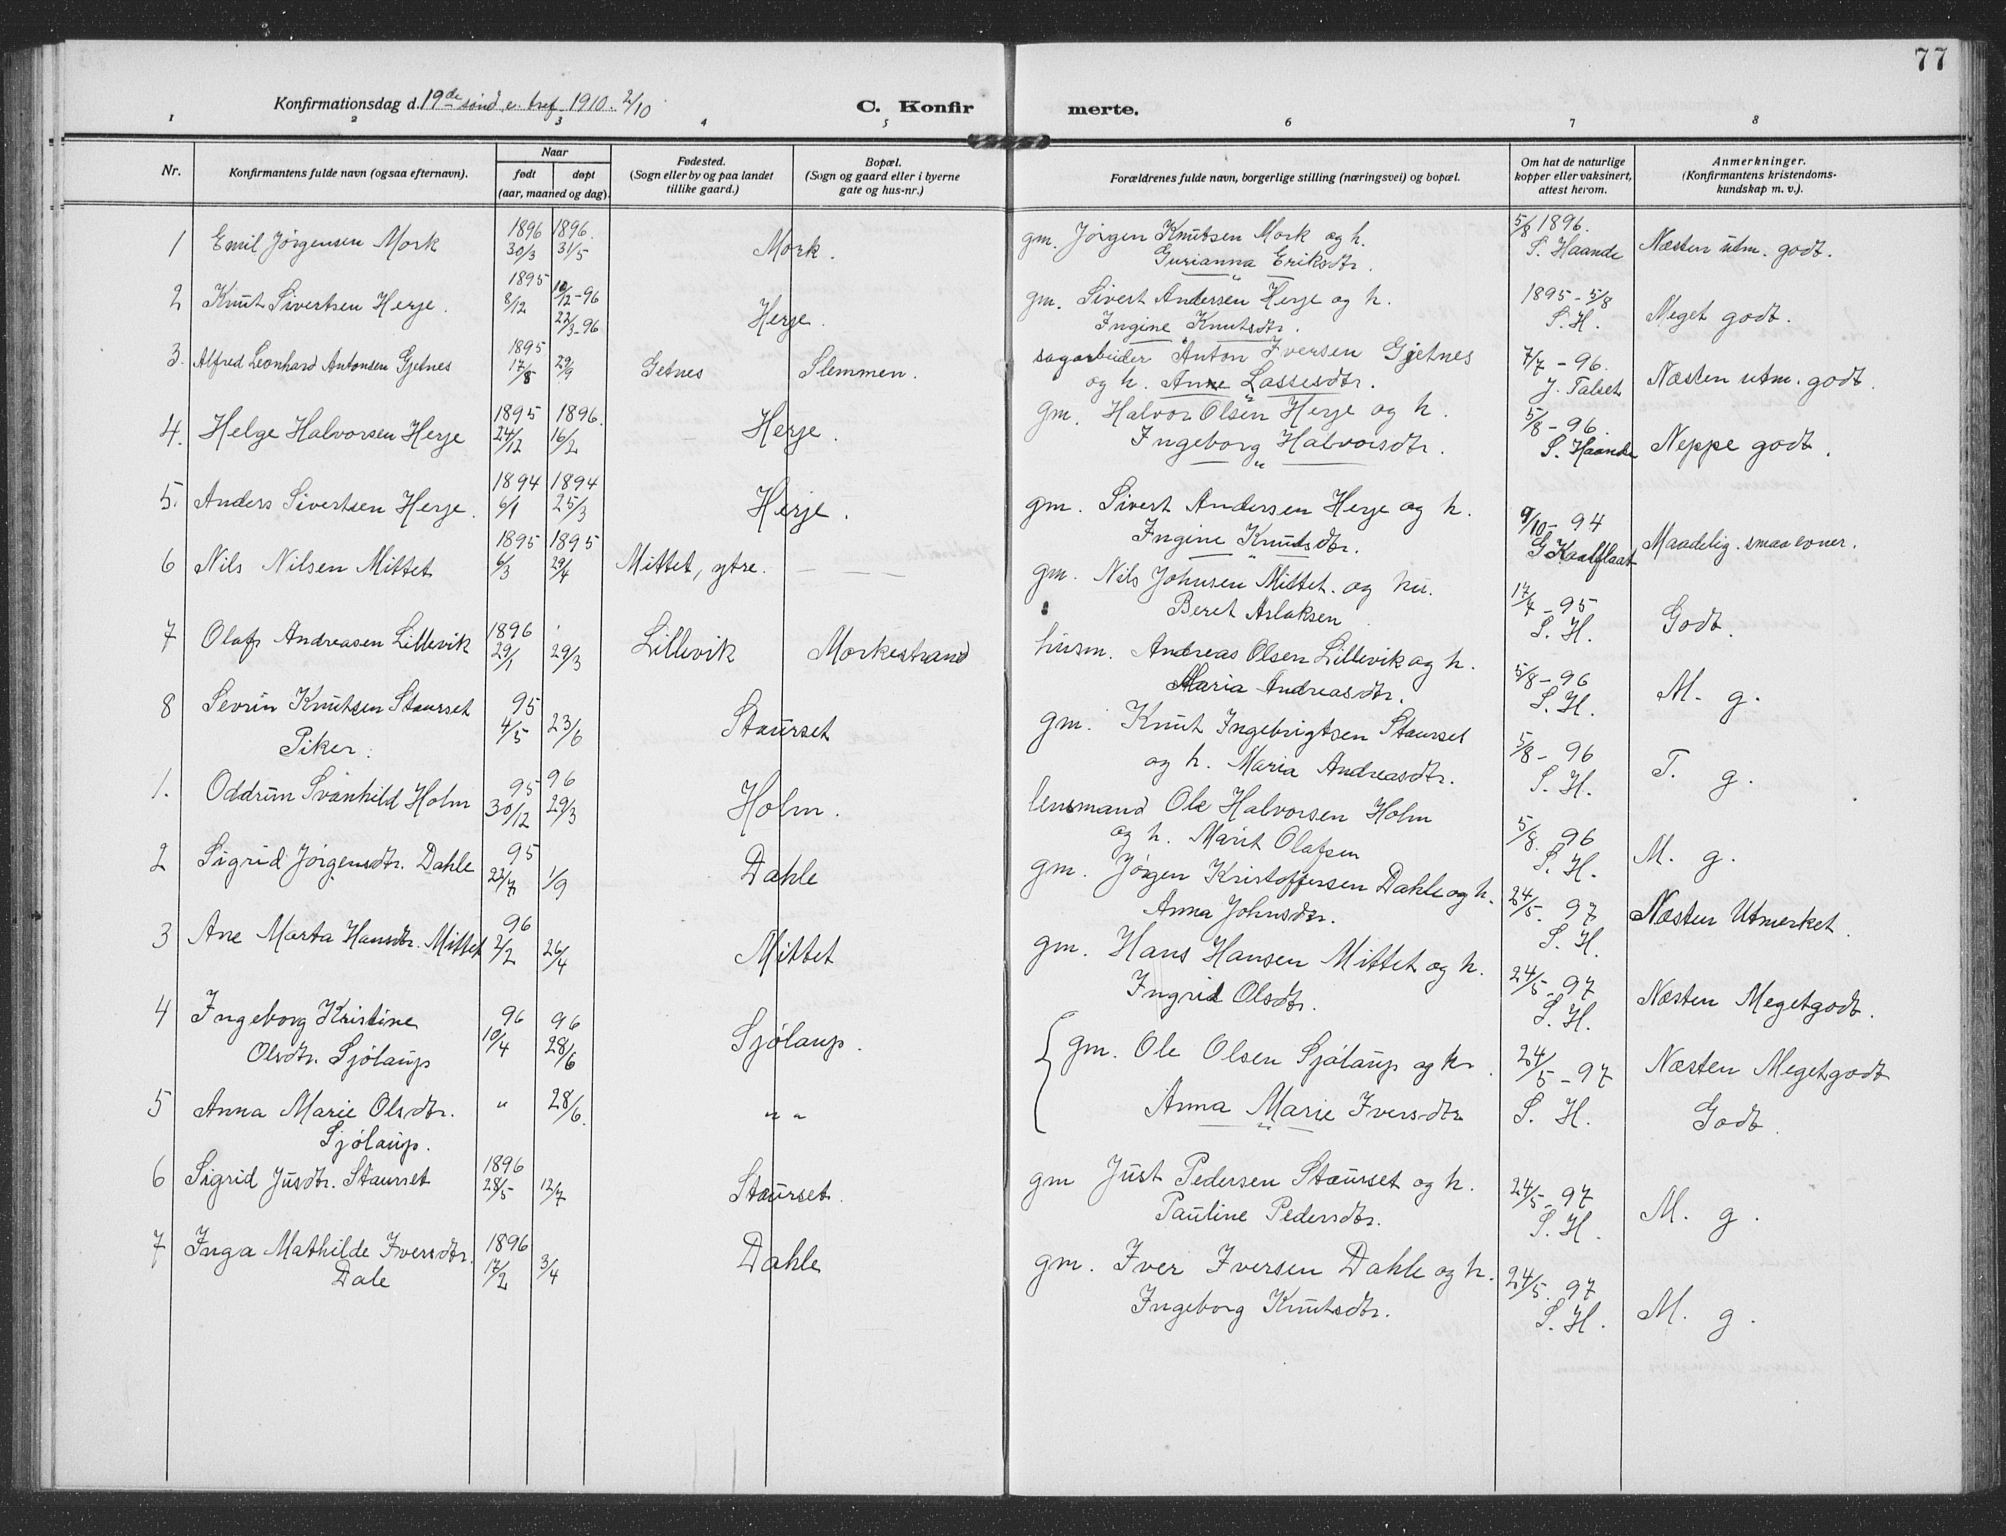 77
Konfirmationsdag d. 19de sønd. e. tref. 1910. 2/10
C. Konfirmerte.
1 2 3 4 5 6 7 8
Nr.
Konfirmantens fulde navn (ogsaa efternavn).
Naar
født
døpt
(aar, maaned og dag).
Fødested.
(Sogn eller by og paa landet
tillike gaard.)
Bopæl.
(Sogn og gaard eller i byerne
gate og hus-nr.)
Forældrenes fulde navn, borgerlige stilling (næringsvei) og bopæl.
Om hat de naturlige
kopper eller vaksinert,
attest herom.
Anmerkninger.
(Konfirmantens kristendoms-
kundskap m. v.).
1 Emil Jørgensen Mork 1896 30/3 1896. 31/5 Mork. gm. Jørgen Knutsen Mork og h. 5/8 1896. Næsten utm. godt.
Gurianna Eriksdtr. S. Haande
2 Knut Sivertsen Herje. 1895 8/12 10/12-96 22/3-96 Herje. gm. Sivert Andersen Herje og h. 1895-5/8 Meget godt.
Ingine Knutsdtr. S. H.
3. Alfred Leonhard Antonsen Gjetnes 1895 17/8 29/9 Getnes Slemmen. sagarbeider Anton Iversen Gjetnes 7/7-96. Næsten utm. godt.
og h. Anne Lassesdtr. J. Talset
4. Helge Halvorsen Herje 1895 24/12 1896. 16/2 Herje. gm. Halvor Olsen Herje og h. 5/8-96. Neppe godt.
Ingeborg Halvorsdtr. S. Haande
5. Anders Sivertsen Herje. 1894 6/1 1894 25/3 Herje. gm. Sivert Andersen Herje og h. 9/10-94 Maadelig. smaa evner.
Ingine Knutsdtr. G Kaalflaat
6 Nils Nilsen Mittet 1895 6/3 1895 29/4 Mittet, ytre. — — gm. Nils Johnsen Mittet. og hu. 17/7-95 Godt.
Beret Aslaksen S. H.
7 Olaf Andreasen Lillevik 1896 29/1 29/3 Lillevik Morkestrand husm. Andreas Olsen Lillevik og h. 5/8-96 M. g.
Maria Andreasdtr. S. H.
8 Sevrin Knutsen Staurset 95 4/5 23/6 Staurset gm. Knut Ingebrigtsen Staurset 5/8-96 T. g.
og h. Maria Andreasdtr. S. H.
Piker:
1. Oddrun Svanhild Holm 95 30/12 96 29/3 Holm. lensmand Ole Halvorsen Holm 5/8. 96 M. g.
og h. Marit Olafsen S. H.
2 Sigrid Jørgensdtr. Dahle 95 22/7 1/9 Dahle gm. Jørgen Kristoffersen Dahle og h. 24/5. 97 Næsten Utmerket.
Anna Johnsdtr. S. H.
3 Ane Marta Hansdtr. Mittet 96 2/2 26/4 Mittet gm. Hans Hansen Mittet og h. 24/5-97 Næsten Megetgodt.
Ingrid Olsdtr. S. H.
4 Ingeborg Kristine 96 10/4 96 28/6 Sjølaup. gm. Ole Olsen Sjølaup og h. 24/5-97 Næsten Megetgodt
Olsdtr. Sjølaup
5 Anna Marie Olsdtr. " 28/6. " " Anna Marie Iversdtr S. H. Godt.
Sjølaup.
6 Sigrid Jusdtr. Staurset 1896 28/5 12/7 Staurset. gm Just Pedersen Staurset og h. 24/5-97 M. g.
Pauline Pedersdtr. S. H.
7 Inga Mathilde Iversdtr. 1896 17/2 3/4 Dahle gm. Iver Iversen Dahle og h. 24/5. 97 M. g.
Dale Ingeborg Knutsdtr. S. H.